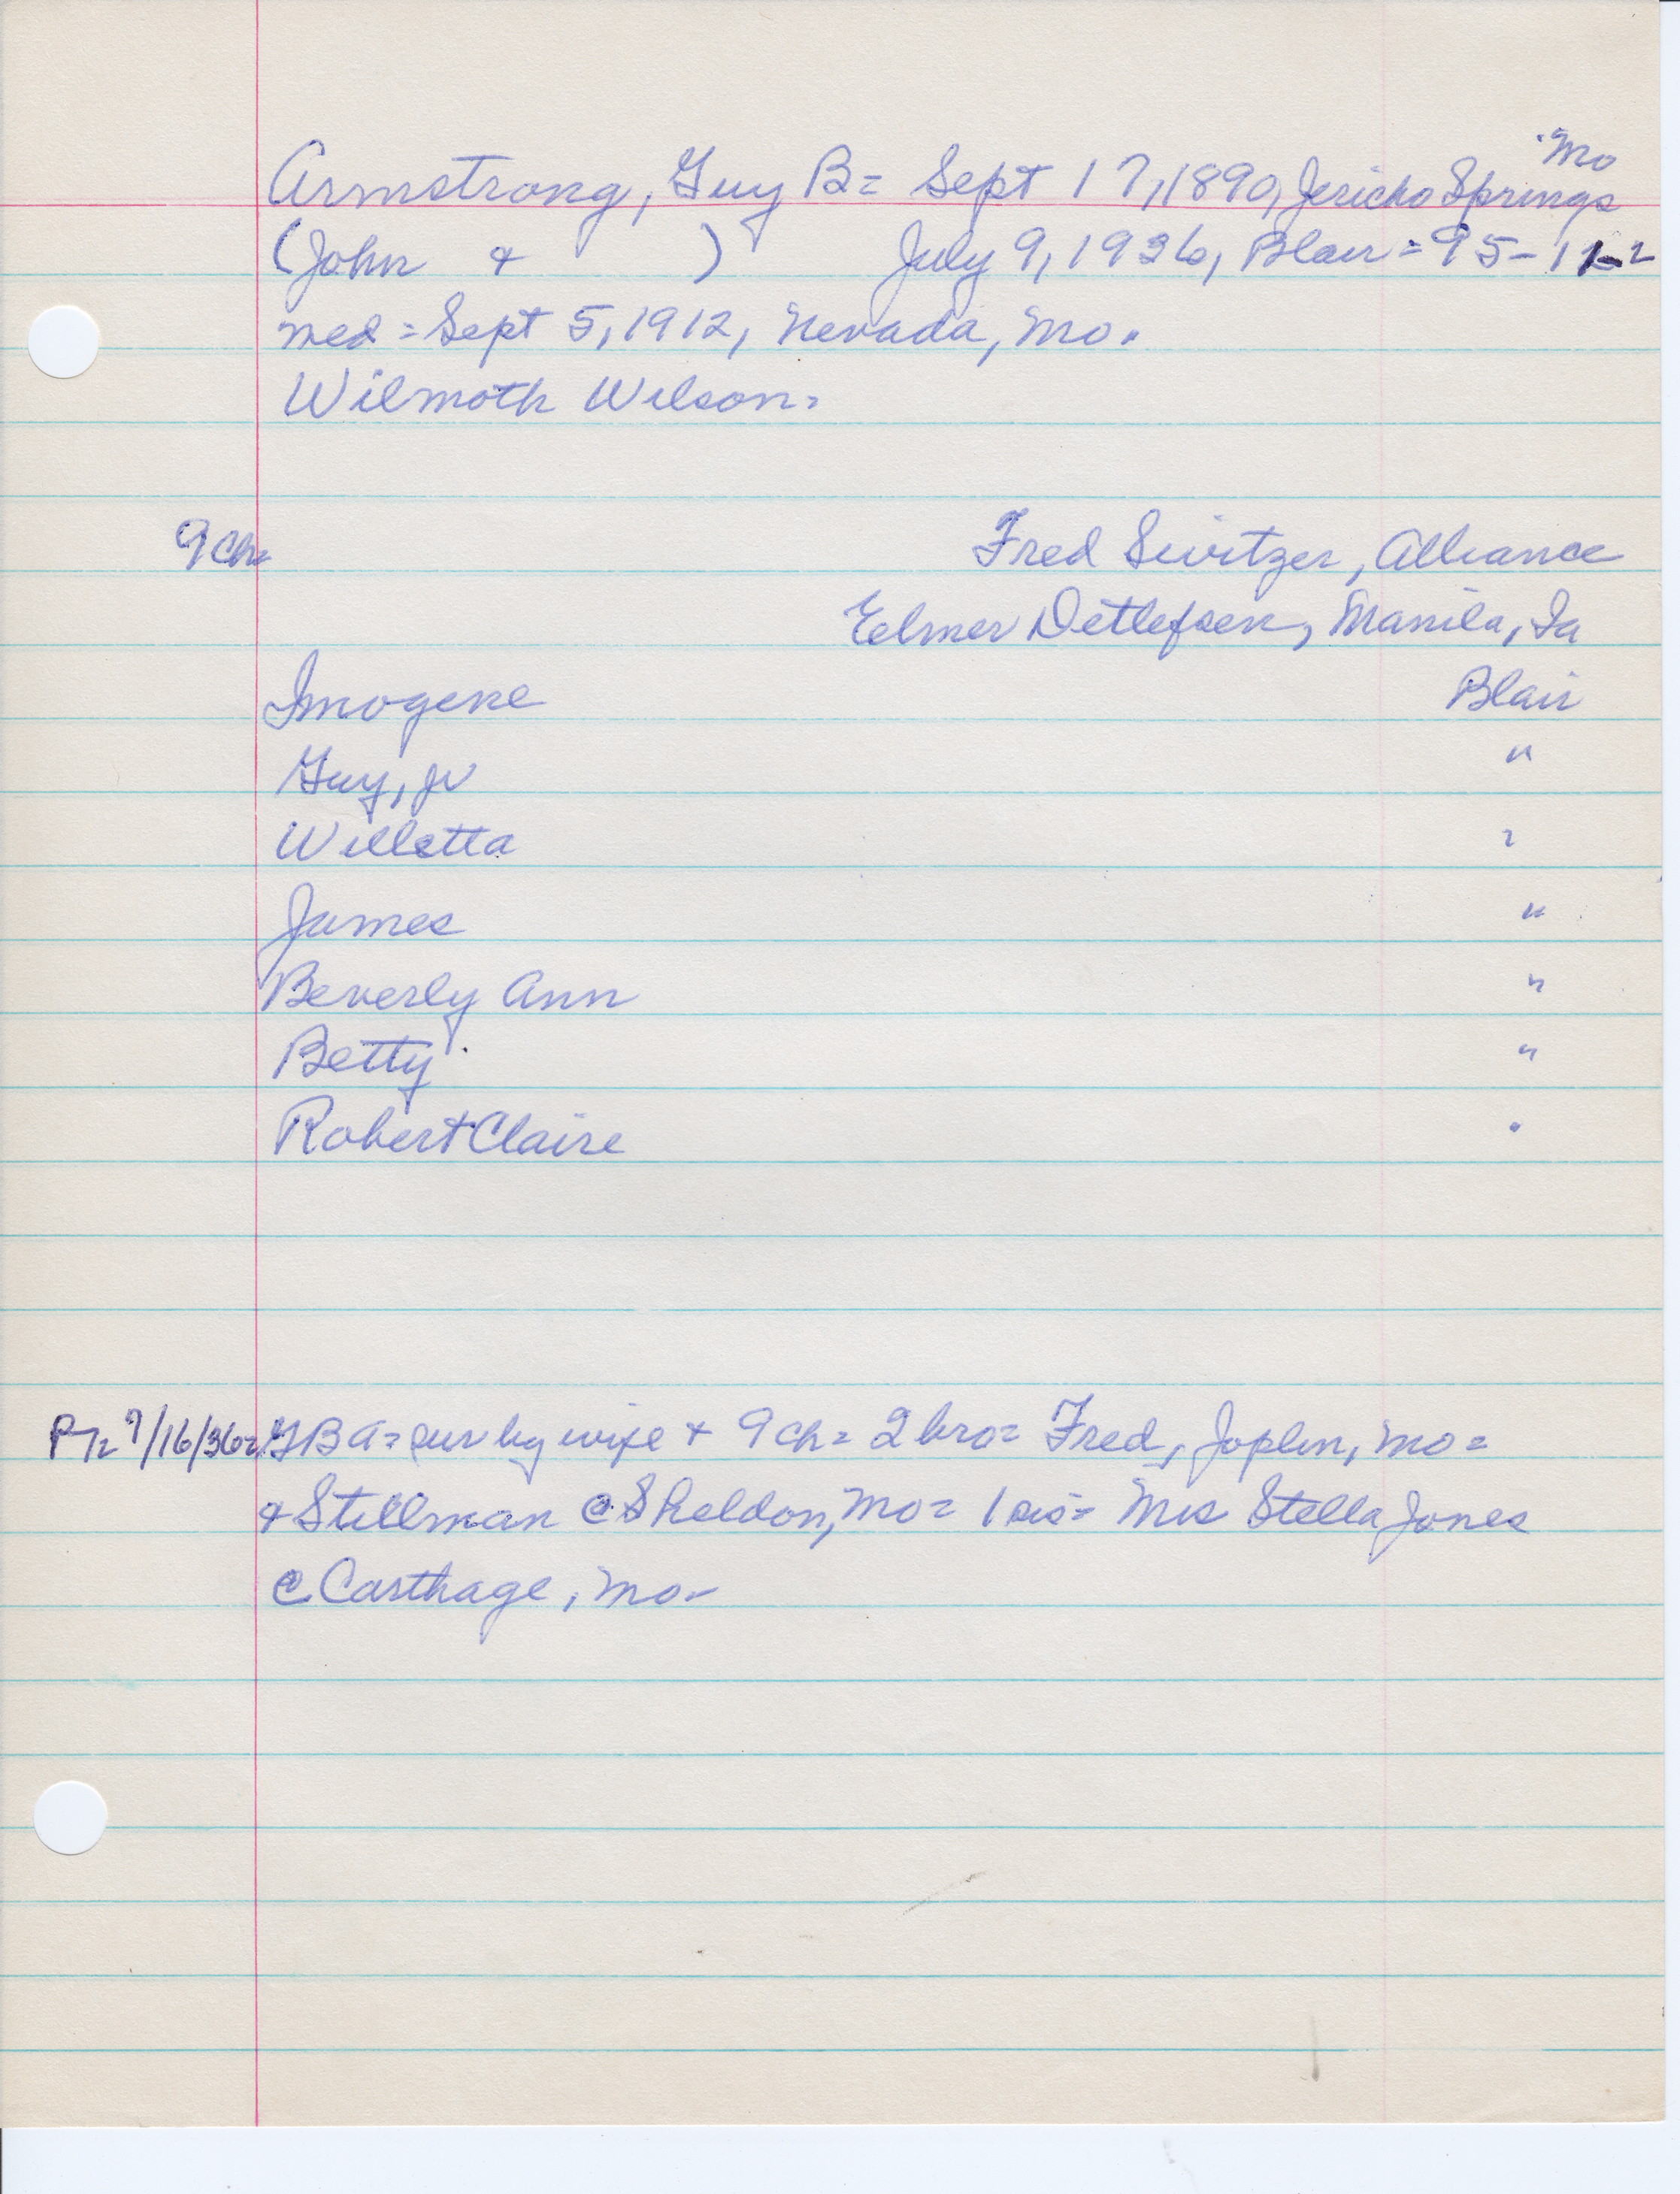 Armstrong, Guy B= Sept 17, 1890, Jericho Springs Mo
(John + ) July 9, 1936, Blair = 95-
med = Sept 5, 1912, Nevada, Mo.
Wilmoth Wilson=
9 ch= Fred Switzer, Alliance
Elmer Detlefsen, Manila, Ia
Imogene Blair
Guy, Jr "
Willetta "
James "
Beverly Ann "
Betty "
Robert Claire "
PT= 7/16/36= GBA= sur by wife + 9 ch= 2 bro= Fred, Joplin, Mo=
+ Stillman @ Sheldon, Mo= 1 sis= Mrs Stella Jones
@ Carthage, Mo-